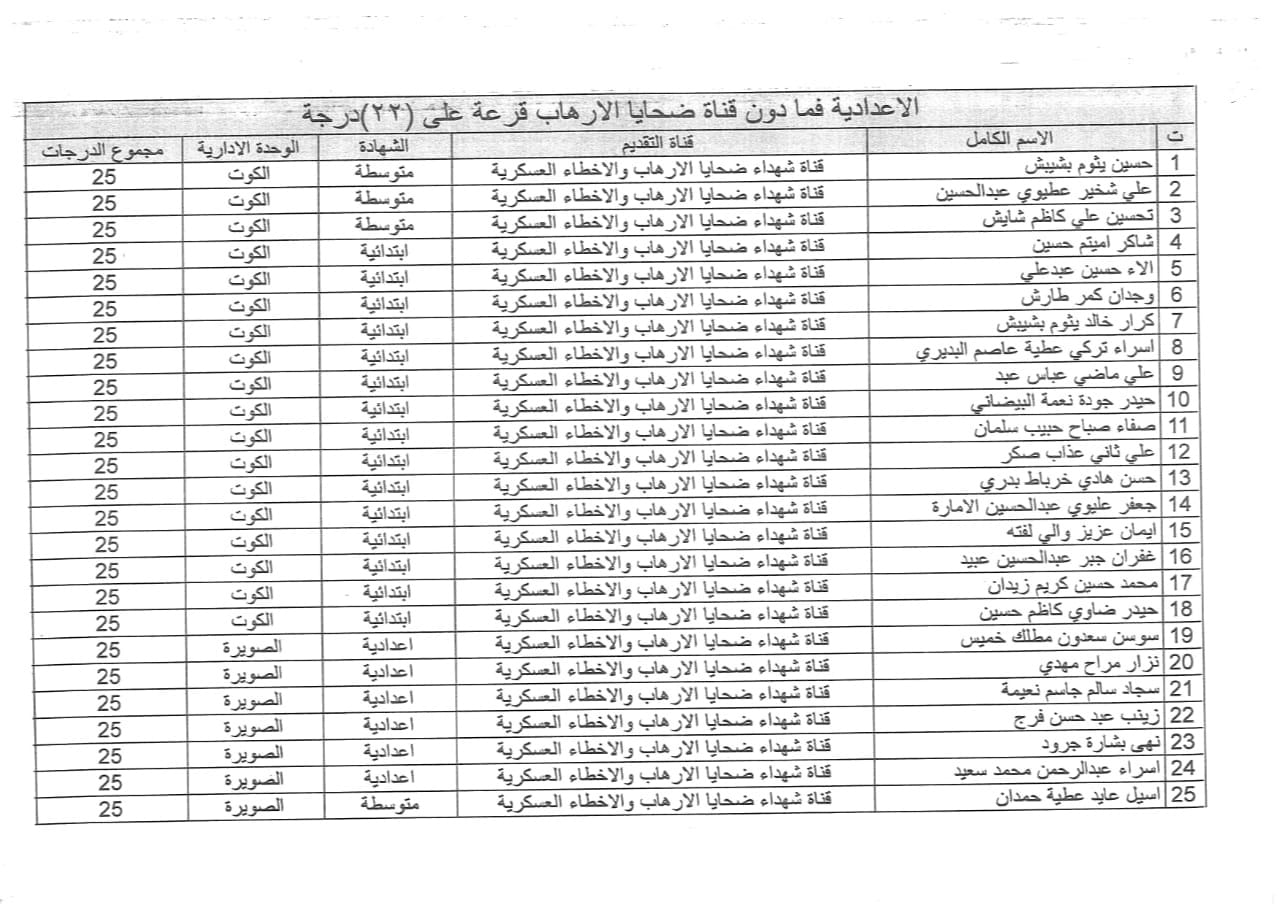 الاعدادية فما دون قناة ضحايا الارهاب قرعة على (٢٢)درجة
ت الاسم الكامل قناة التقديم الشهادة الوحدة الادارية مجموع الدرجات
1 حسين يثوم بشيبش قناة شهداء ضحايا الارهاب والاخطاء العسكرية متوسطة الكوت 25
2 علي شخير عطيوي عبدالحسين قناة شهداء ضحايا الارهاب والاخطاء العسكرية متوسطة الكوت 25
3 تحسين علي كاظم شايش قناة شهداء ضحايا الارهاب والاخطاء العسكرية متوسطة الكوت 25
4 شاكر اميتم حسين قناة شهداء ضحايا الارهاب والاخطاء العسكرية ابتدائية الكوت 25
5 الاء حسين عبدعلي قناة شهداء ضحايا الارهاب والاخطاء العسكرية ابتدائية الكوت 25
6 وجدان كمر طارش قناة شهداء ضحايا الارهاب والاخطاء العسكرية ابتدائية الكوت 25
7 كرار خالد يثوم بشيبش قناة شهداء ضحايا الارهاب والاخطاء العسكرية ابتدائية الكوت 25
8 اسراء تركي عطية عاصم البديري قناة شهداء ضحايا الارهاب والاخطاء العسكرية ابتدائية الكوت 25
9 علي ماضي عباس عبد قناة شهداء ضحايا الارهاب والاخطاء العسكرية ابتدائية الكوت 25
10 حيدر جودة نعمة البيضاني قناة شهداء ضحايا الارهاب والاخطاء العسكرية ابتدائية الكوت 25
11 صفاء صباح حبيب سلمان قناة شهداء ضحايا الارهاب والاخطاء العسكرية ابتدائية الكوت 25
12 علي ثاني عذاب صكر قناة شهداء ضحايا الارهاب والاخطاء العسكرية ابتدائية الكوت 25
13 حسن هادي خرباط بدري قناة شهداء ضحايا الارهاب والاخطاء العسكرية ابتدائية الكوت 25
14 جعفر عليوي عبدالحسين الامارة قناة شهداء ضحايا الارهاب والاخطاء العسكرية ابتدائية الكوت 25
15 ايمان عزيز والي لفته قناة شهداء ضحايا الارهاب والاخطاء العسكرية ابتدائية الكوت 25
16 غفران جبر عبدالحسين عبيد قناة شهداء ضحايا الارهاب والاخطاء العسكرية ابتدائية الكوت 25
17 محمد حسين كريم زيدان قناة شهداء ضحايا الارهاب والاخطاء العسكرية ابتدائية الكوت 25
18 حيدر ضاوي كاظم حسين قناة شهداء ضحايا الارهاب والاخطاء العسكرية ابتدائية الكوت 25
19 سوسن سعدون مطلك خميس قناة شهداء ضحايا الارهاب والاخطاء العسكرية اعدادية الصويرة 25
20 نزار مراح مهدي قناة شهداء ضحايا الارهاب والاخطاء العسكرية اعدادية الصويرة 25
21 سجاد سالم جاسم نعيمة قناة شهداء ضحايا الارهاب والاخطاء العسكرية اعدادية الصويرة 25
22 زينب عبد حسن فرج قناة شهداء ضحايا الارهاب والاخطاء العسكرية اعدادية الصويرة 25
23 نهى بشارة جرود قناة شهداء ضحايا الارهاب والاخطاء العسكرية اعدادية الصويرة 25
24 اسراء عبدالرحمن محمد سعيد قناة شهداء ضحايا الارهاب والاخطاء العسكرية اعدادية الصويرة 25
25 اسيل عايد عطية حمدان قناة شهداء ضحايا الارهاب والاخطاء العسكرية متوسطة الصويرة 25